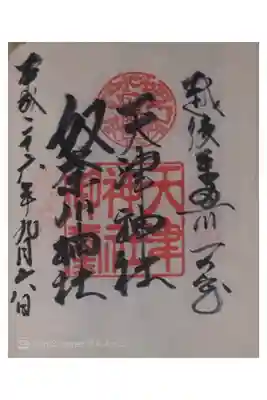 越後糸魚川 一の宮
天津神社
奴奈川神社
平成二十六年九月日
天津
神社